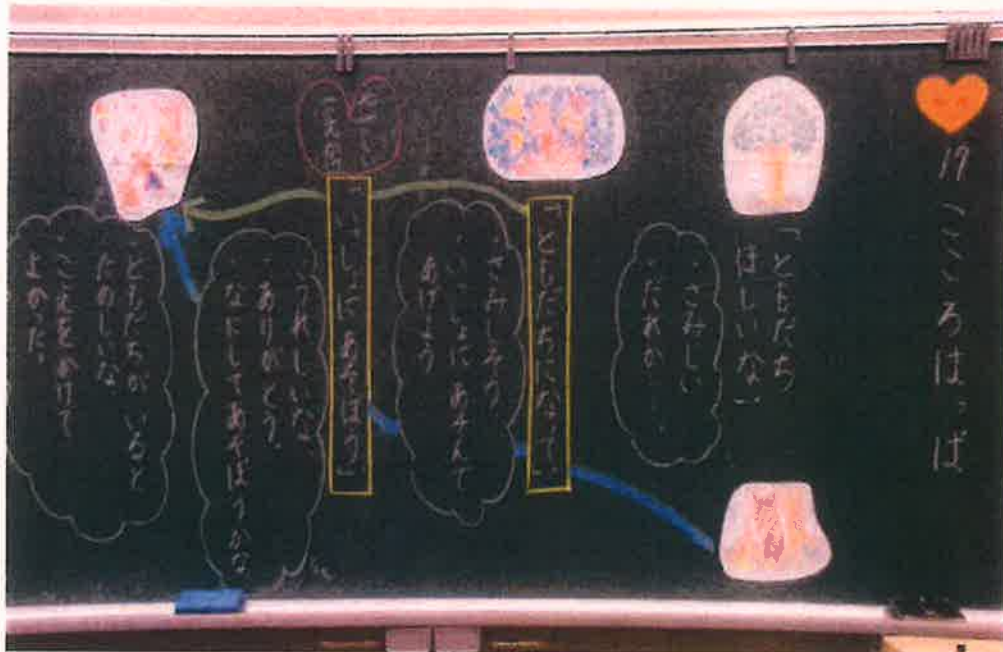 17 こころはっぱ
「ともだち
ほしいな」
・さみしい
・だれか・・・
「ともだちになって」
・さみしそう。
・いっしょに あそんで
あげよう
「いっしょに あそぼう」
・うれしいな
・ありがとう。
・なにしてあそぼうかな
・ともだちが いると
たのしいな
・こえをかけて
よかった。